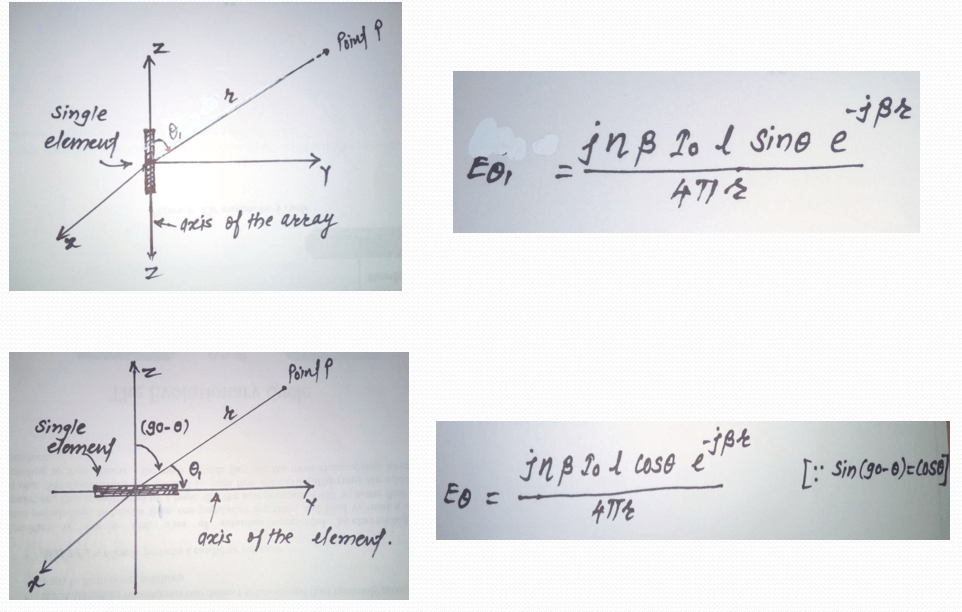 Z
Point P
r
Single
element
θ₁
Y
axis of the array
x
Z
Eθ₁ = jηβ I₀ l sinθ e^-jβr / 4πr
Z
Point P
r
Single
element
(90-θ)
θ₁
Y
axis of the element.
x
Eθ = jηβ I₀ l cosθ e^-jβr / 4πr [∵ Sin(90-θ)=Cosθ]